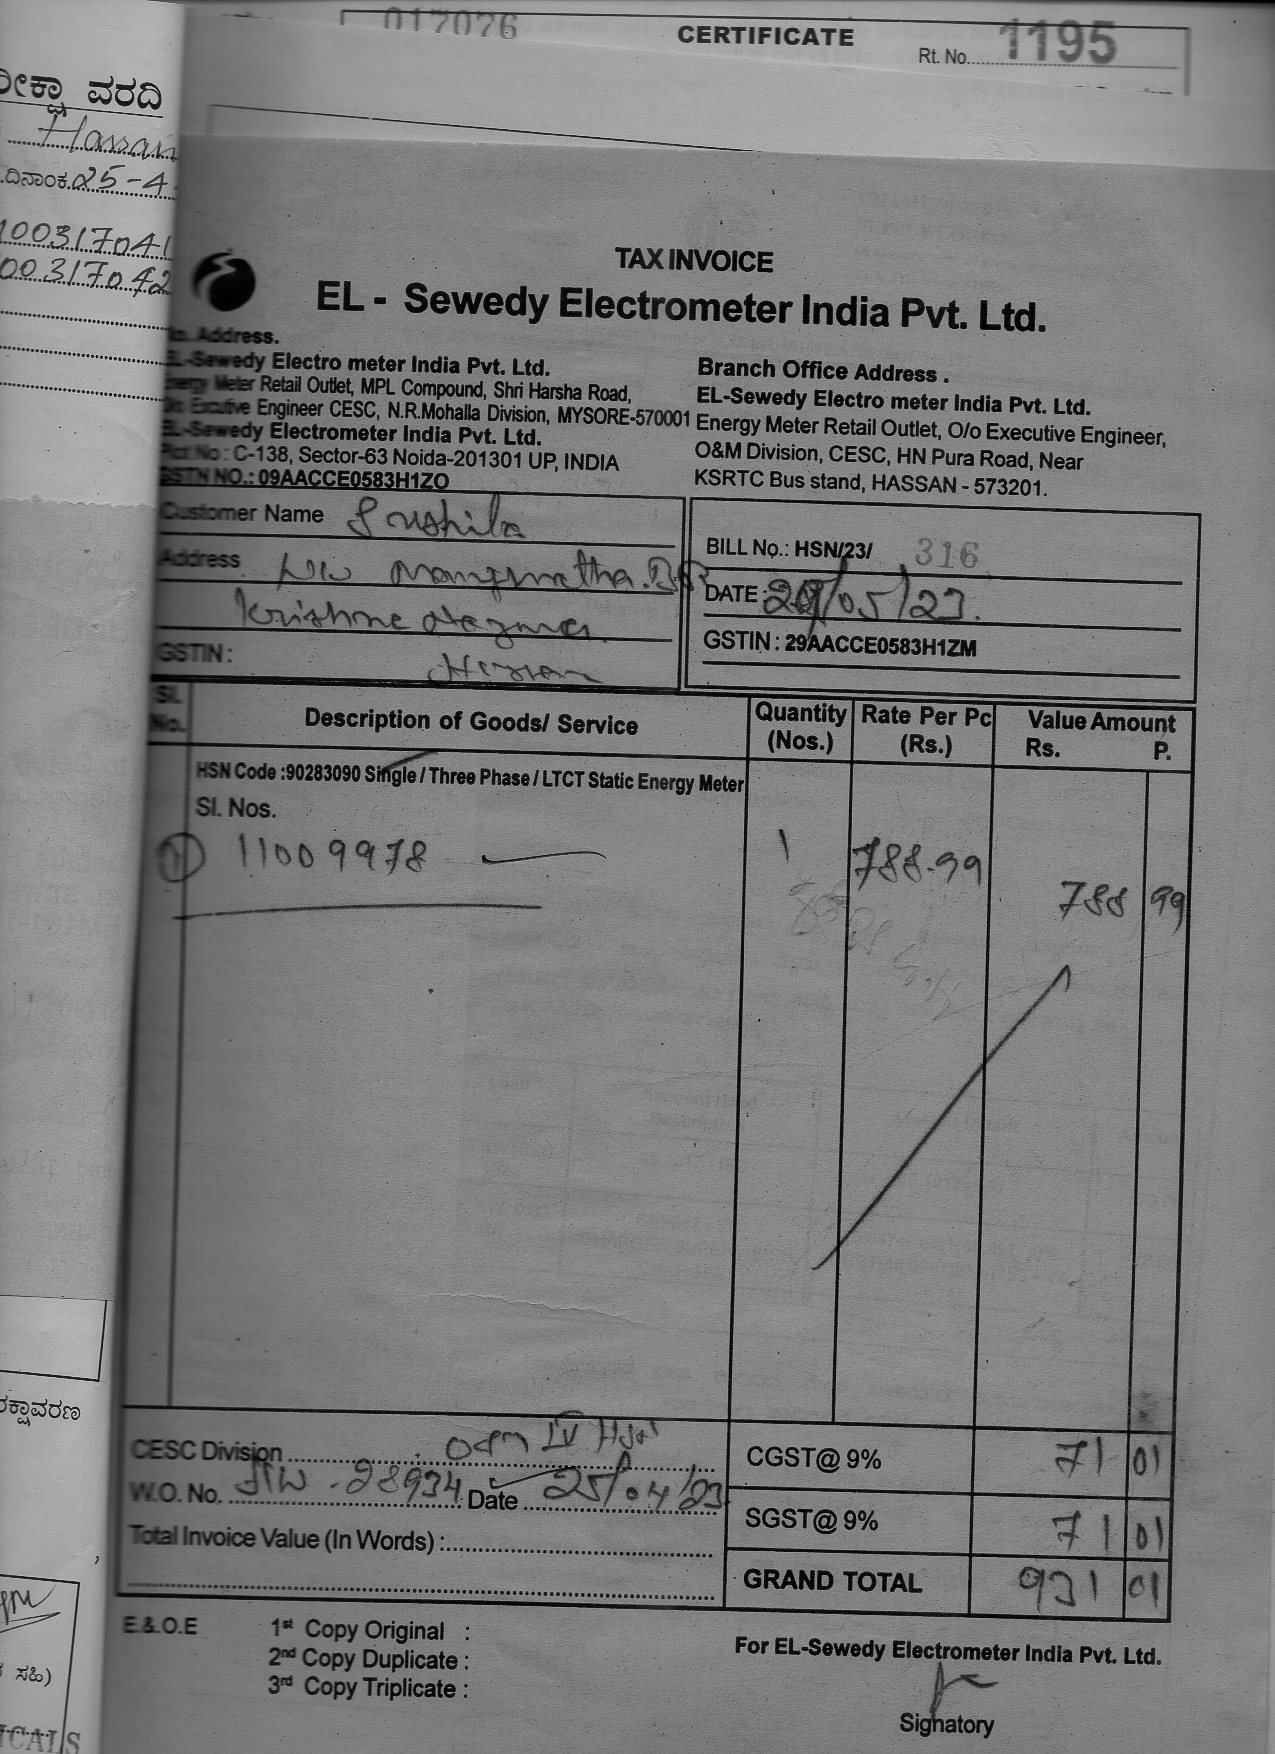 017076
CERTIFICATE
Rt. No. 1195
ವರದಿ
Hassan
ದಿನಾಂಕ 25-4
10031704
00317042
TAX INVOICE
EL - Sewedy Electrometer India Pvt. Ltd.
Address.
EL-Sewedy Electro meter India Pvt. Ltd.
Energy Meter Retail Outlet, MPL Compound, Shri Harsha Road,
Engineer CESC, N.R.Mohalla Division, MYSORE-570001
EL-Sewedy Electrometer India Pvt. Ltd.
Plot No : C-138, Sector-63 Noida-201301 UP, INDIA
GSTN NO.: 09AACCE0583H1ZO
Branch Office Address .
EL-Sewedy Electro meter India Pvt. Ltd.
Energy Meter Retail Outlet, O/o Executive Engineer,
O&M Division, CESC, HN Pura Road, Near
KSRTC Bus stand, HASSAN - 573201.
Customer Name Sushila
Address
GSTIN : Hassan
BILL No.: HSN/23/ 316
DATE : /05/23.
GSTIN : 29AACCE0583H1ZM
Sl. No. Description of Goods/ Service Quantity (Nos.) Rate Per Pc (Rs.) Value Amount Rs. P.
HSN Code :90283090 Single / Three Phase / LTCT Static Energy Meter
Sl. Nos.
1 11009978 1 788.99 788 99
CESC Division
W.O. No. 28934 Date 25/04/23
Total Invoice Value (In Words) :
CGST@ 9% 71 01
SGST@ 9% 71 01
GRAND TOTAL 931 01
E.& .O.E
1st Copy Original :
2nd Copy Duplicate :
3rd Copy Triplicate :
For EL-Sewedy Electrometer India Pvt. Ltd.
Signatory
ಸಹಿ)